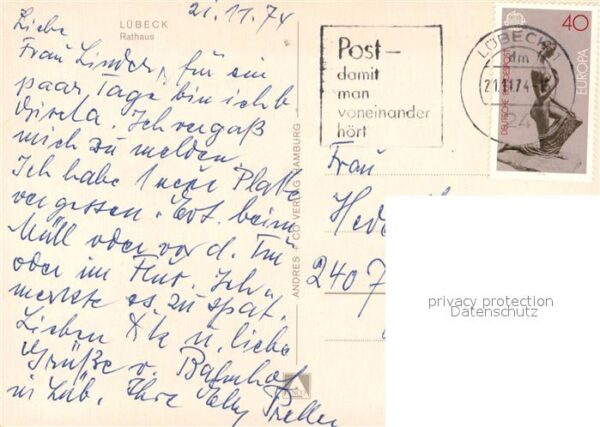 LÜBECK
Rathaus
21.11.74
Liebe
Frau Linder, für ein
paar Tage bin ich b
Gisela. Ich vergaß
mich zu melden.
Ich habe 1 neue Platte
vergessen. Evt. beim
Müll oder vor d. Tür
oder im Flur. Ich
merkte es zu spät.
Lieben u. liebe
Grüße v. Bahnhof
in Lüb. Ihre Elly Preller
ANDRES + CO VERLAG HAMBURG
Post-
damit
man
voneinander
hört
LÜBECK 1
dm
21.11.74
24
40
EUROPA
DEUTSCHE BUNDESPOST
Frau
2407
privacy protection
Datenschutz